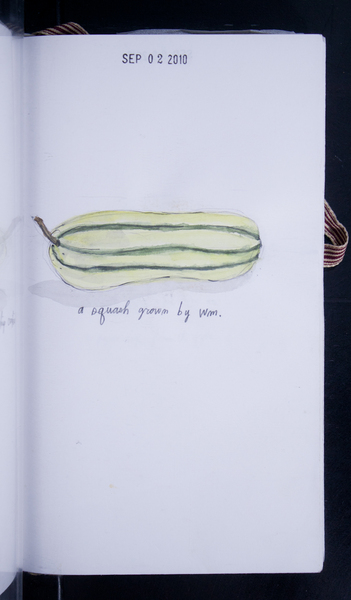 SEP 02 2010
a squash grown by Wm.